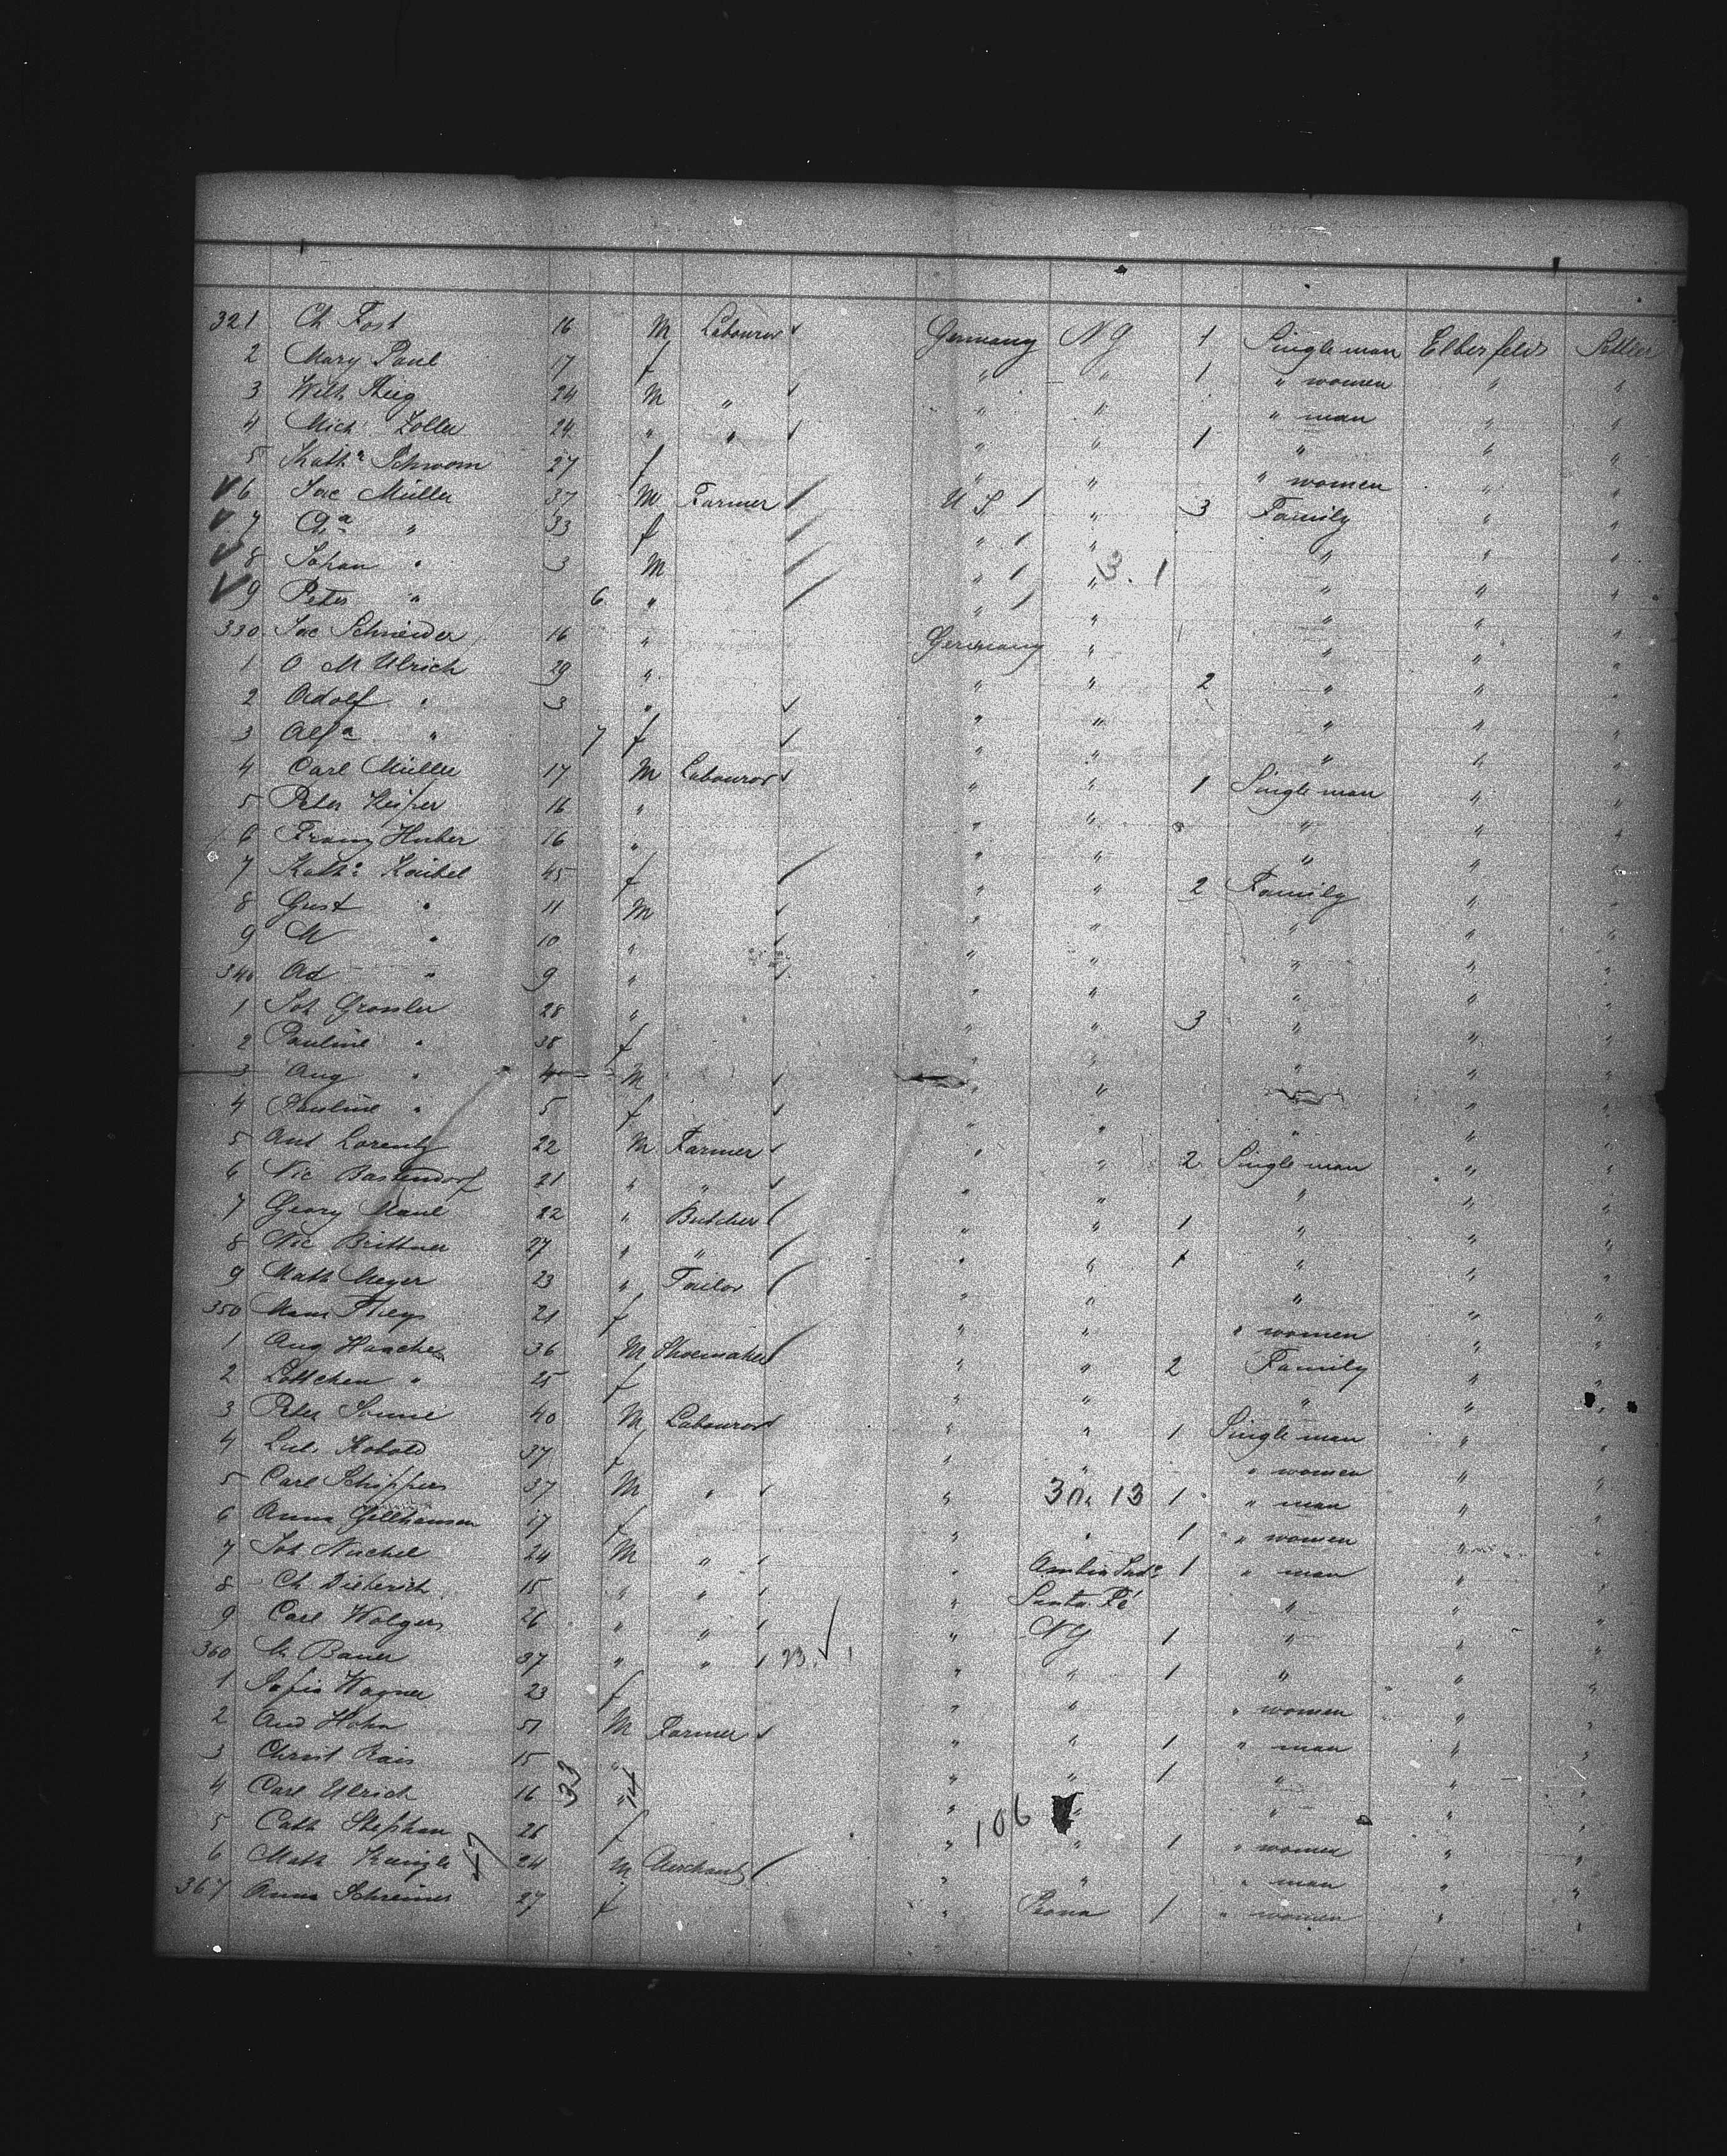 321 Ch Fost 16 M Labourer Germany NY 1 Single man Elberfeld Settler
2 Mary Paul 17 f " " 1 " women " "
3 Wilh 24 M " " " " man " "
4 Mich Zoller 24 " " " " 1 " " "
5 Kath Schwom 27 f " " " women " "
6 Jac Müller 37 M Farmer U S 1 " 3 Family " "
7 " 33 f " 1 " " " "
8 Johan " 3 M " 1 " 1 " " "
9 Peter " 6 " " 1 " " " "
330 Jac Schneider 16 " Germany " " " "
1 O M Ulrich 29 " " " 2 " " "
2 Adolf " 3 " " " " " "
3 " 7 f " " " " "
4 Carl Müller 17 M Labourer " " 1 Single man " "
5 Peter 16 " " " " " "
6 Franz Huber 16 " " " " " "
7 Kath 45 f " " 2 Family " "
8 Gust " 11 M " " " " "
9 M " 10 " " " " " "
340 Ad " 9 " " " " " "
1 Joh Grossler 28 " " " 3 " " "
2 Pauline " 38 f " " " " "
3 Aug " 4 M " " " "
4 Pauline " 5 f " " " " "
5 Ant Lorentz 22 M Farmer " " 2 Single man " "
6 Nic Bastendorf 21 " " " " " " "
7 Georg Maul 22 " Butcher " " 1 " " "
8 Nic Brittner 27 " " " " 1 " " "
9 Math Meyer 23 " Tailor " " " " "
350 21 f " " " women " "
1 Aug Haacher 36 M Shoemaker " " 2 Family " "
2 Lottchen " 25 f " " " " "
3 Peter 40 M Labourer " " 1 Single man " "
4 Kobold 37 f " " " women " "
5 Carl Schippers 37 M " " 13 1 " man " "
6 Anna Gillhausen 17 f " " 1 " women " "
7 Joh Nuchel 24 M " " 1 " man " "
8 Ch Dieterich 15 " " " Santa Fé " " "
9 Carl Wolgers 26 " " " NY 1 " " "
360 Bauer 37 " " 23 " " 1 " " "
1 Sofia Wagner 23 f " " " women " "
2 And Hahn 51 M Farmer " " 1 " man " "
3 Christ Rais 15 " " " 1 " " "
4 Carl Ulrich 16 33 " " " " " "
5 Cath Stephan 26 f " 106 " 1 " women " "
6 Math 24 M Merchant " " " man " "
367 Anna Schreiner 27 f " 1 " women " "